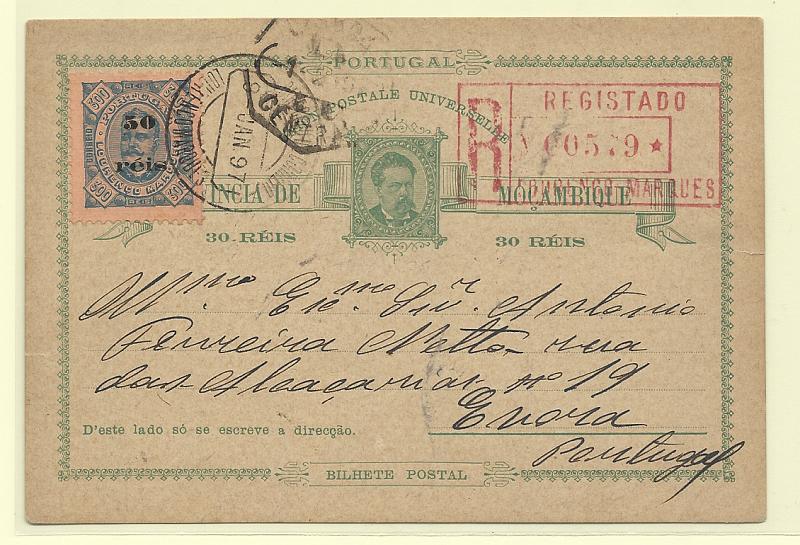 PORTUGAL
POSTALE UNIVERSELLE
PROVINCIA DE MOÇAMBIQUE
30 RÉIS 30 RÉIS
300 REIS 300
CORREIO
50
réis
LOURENÇO MARQUES
300 300
JAN 97
CENTRAL
R
REGISTADO
00579 *
LOURENÇO MARQUES
Illmo. Exc. mo Snr. Antonio
Ferreira Netto - rua
das Alcaçarias nº 19
Evora
Portugal
D'este lado só se escreve a direcção.
BILHETE POSTAL